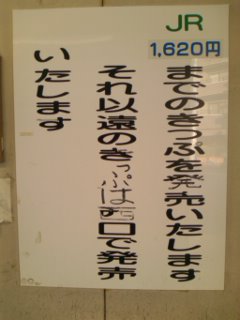 JR
1,620円
までのきっぷを発売いたします
それ以遠のきっぷは西口で発売
いたします